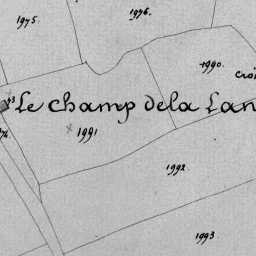 1976.
1975.
1990.
Le Champ de la Lan
1991
1992
1993